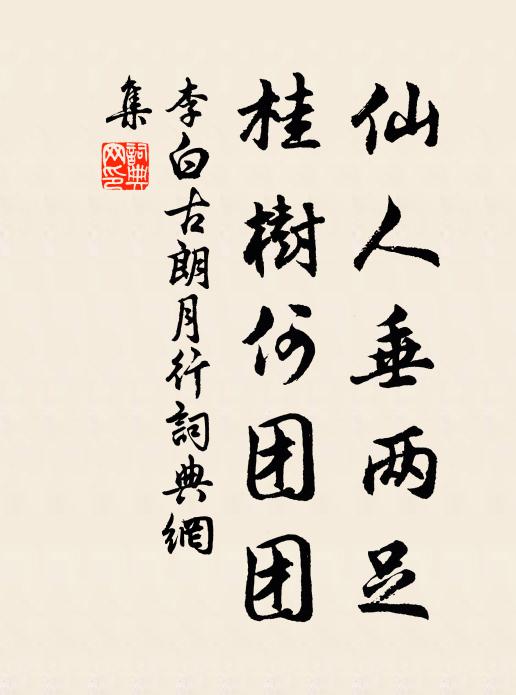 仙人垂两足
桂樹何团团
李白古朗月行詞典網
集
詞典
网印